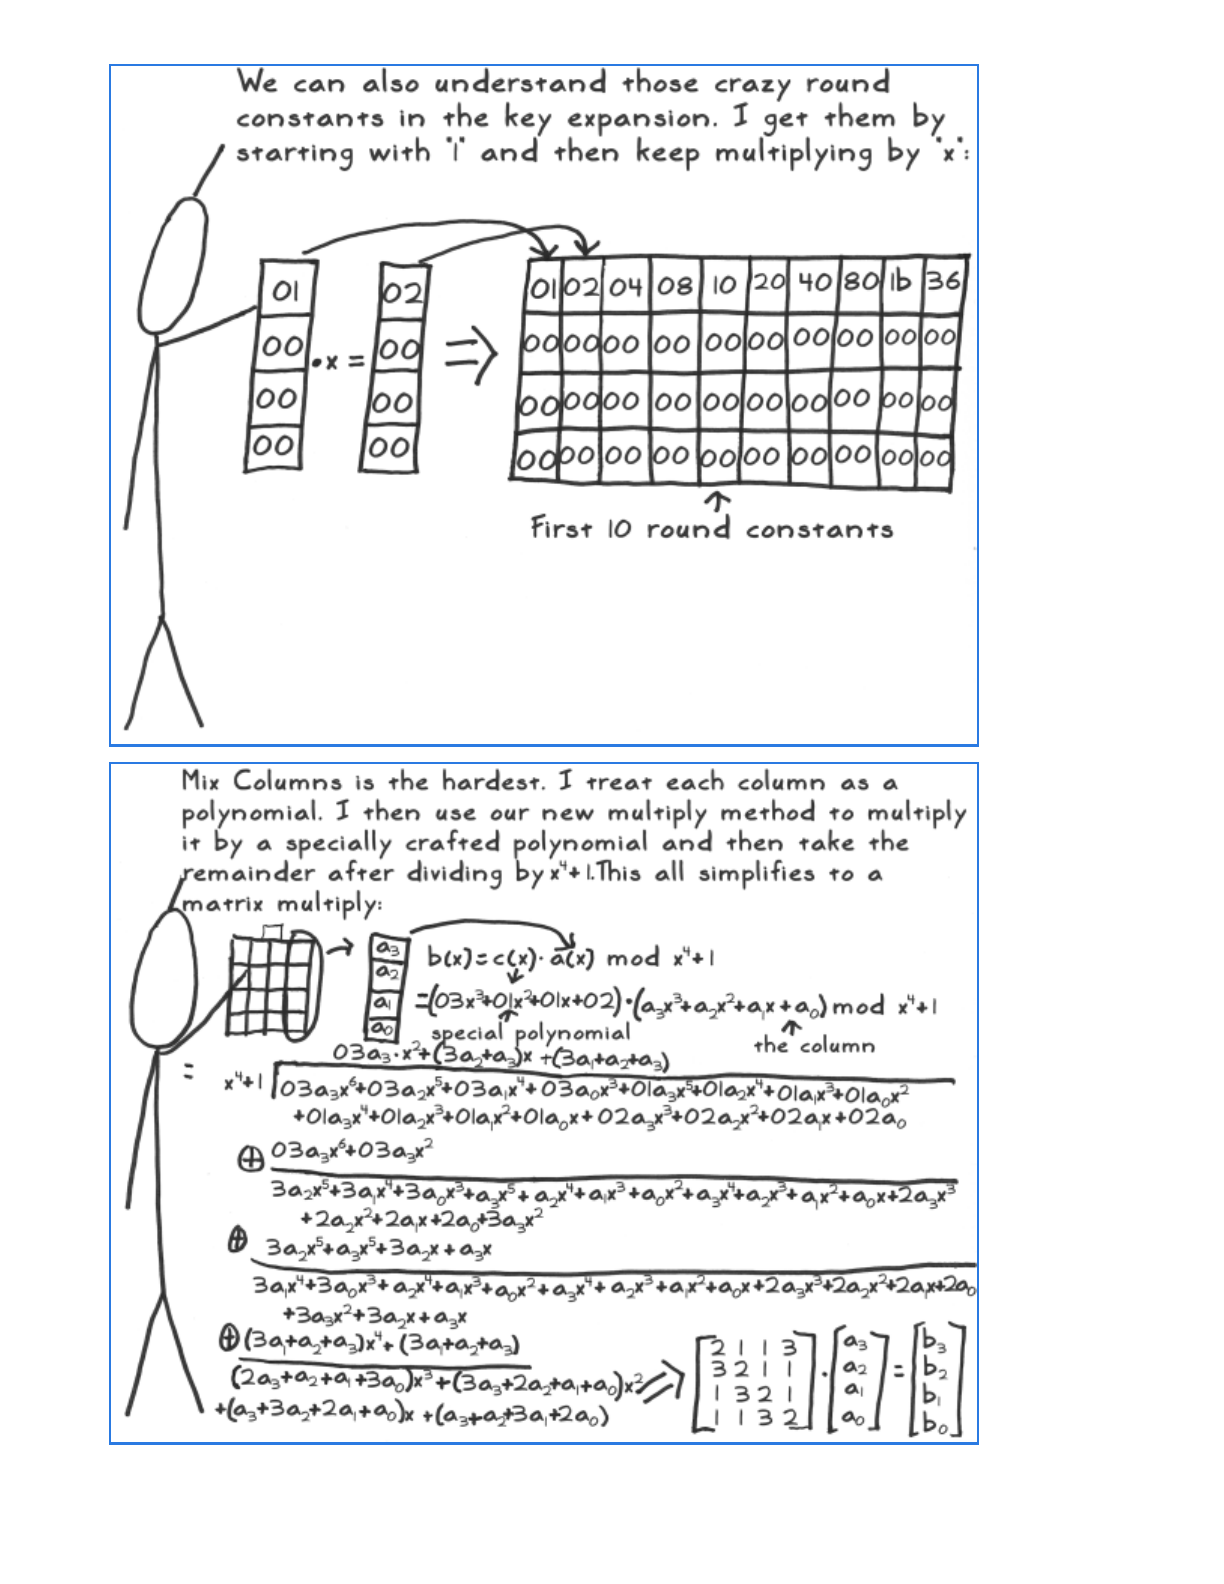 We can also understand those crazy round
constants in the key expansion. I get them by
starting with "1" and then keep multiplying by "x":
01 02 01 02 04 08 10 20 40 80 1b 36
00 • x = 00 ⇒ 00 00 00 00 00 00 00 00 00 00
00 00 00 00 00 00 00 00 00 00 00 00
00 00 00 00 00 00 00 00 00 00 00 00
First 10 round constants
Mix Columns is the hardest. I treat each column as a
polynomial. I then use our new multiply method to multiply
it by a specially crafted polynomial and then take the
remainder after dividing by x⁴+1. This all simplifies to a
matrix multiply:
a₃
a₂
a₁
a₀
b(x) = c(x) · a(x) mod x⁴+1
=(03x³+01x²+01x+02)·(a₃x³+a₂x²+a₁x+a₀) mod x⁴+1
special polynomial
the column
03a₃·x²+(3a₂+a₃)x+(3a₁+a₂+a₃)
= x⁴+1 03a₃x⁶+03a₂x⁵+03a₁x⁴+03a₀x³+01a₃x⁵+01a₂x⁴+01a₁x³+01a₀x²
+01a₃x⁴+01a₂x³+01a₁x²+01a₀x+02a₃x³+02a₂x²+02a₁x+02a₀
⊕ 03a₃x⁶+03a₃x²
3a₂x⁵+3a₁x⁴+3a₀x³+a₃x⁵+a₂x⁴+a₁x³+a₀x²+a₃x⁴+a₂x³+a₁x²+a₀x+2a₃x³
+2a₂x²+2a₁x+2a₀+3a₃x²
⊕ 3a₂x⁵+a₃x⁵+3a₂x+a₃x
3a₁x⁴+3a₀x³+a₂x⁴+a₁x³+a₀x²+a₃x⁴+a₂x³+a₁x²+a₀x+2a₃x³+2a₂x²+2a₁x+2a₀
+3a₃x²+3a₂x+a₃x
⊕ (3a₁+a₂+a₃)x⁴+(3a₁+a₂+a₃)
(2a₃+a₂+a₁+3a₀)x³+(3a₃+2a₂+a₁+a₀)x²
+(a₃+3a₂+2a₁+a₀)x+(a₃+a₂+3a₁+2a₀)
⇒ 2 1 1 3 a₃ b₃
3 2 1 1 · a₂ = b₂
1 3 2 1 a₁ b₁
1 1 3 2 a₀ b₀